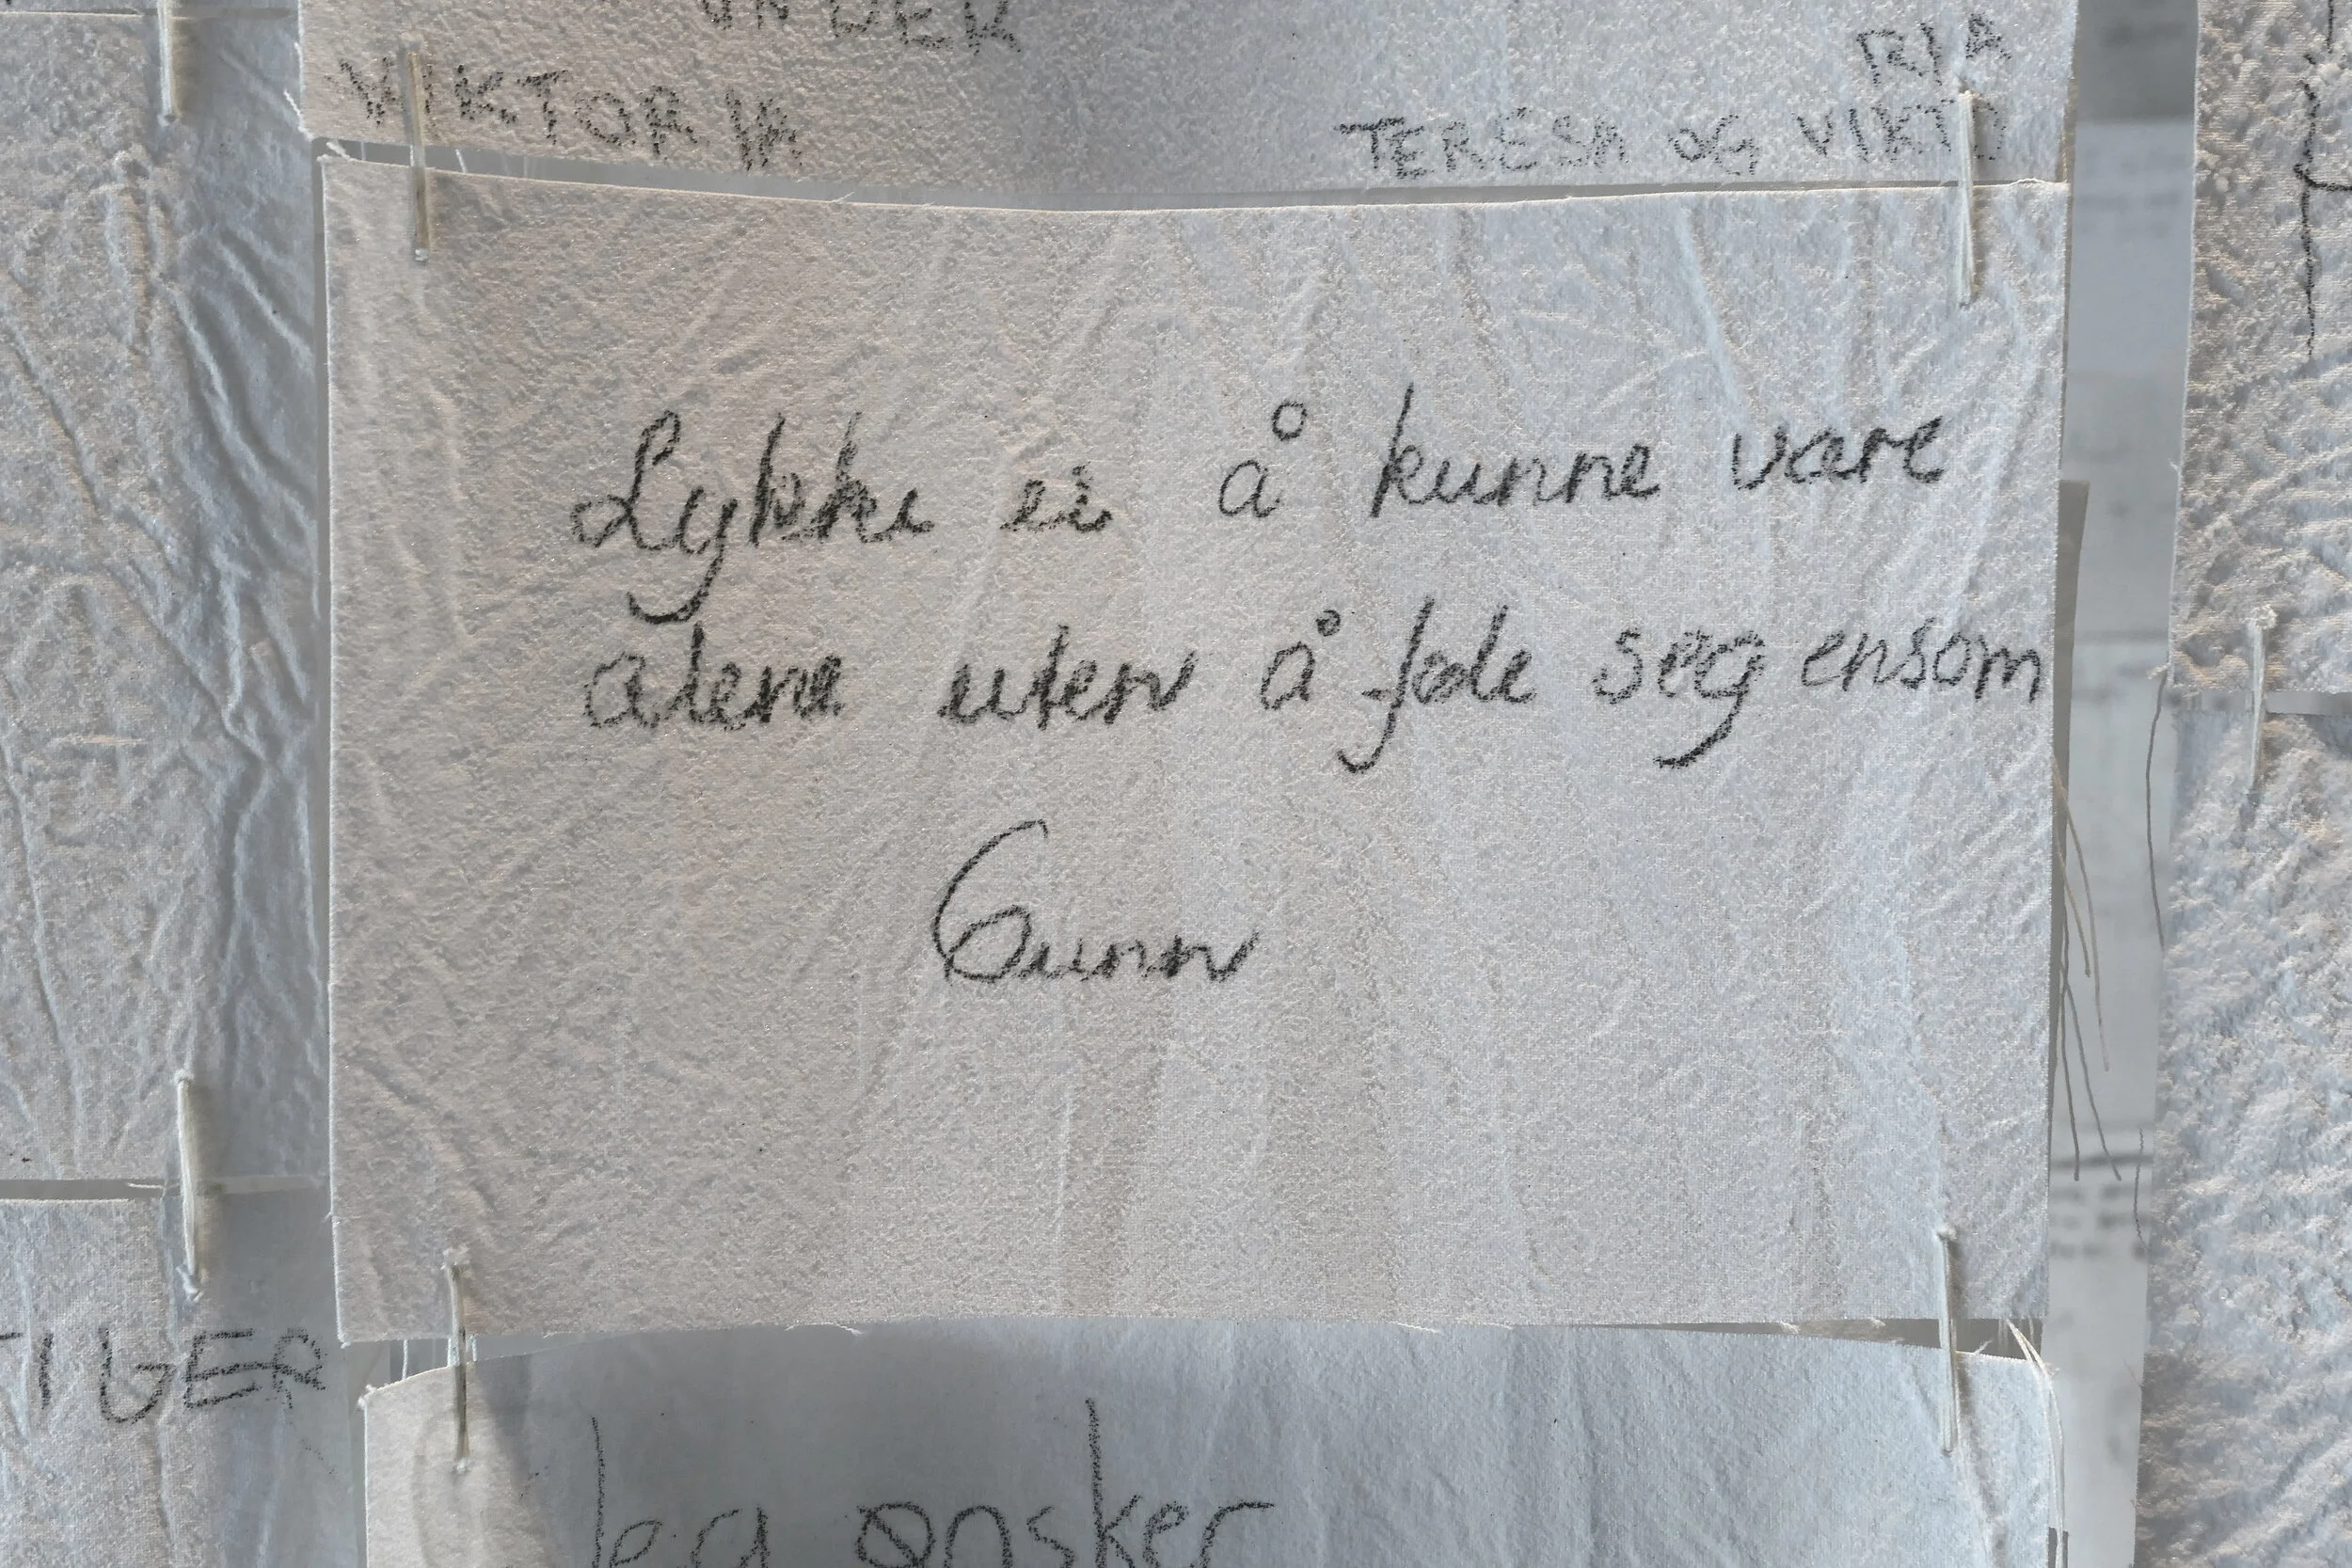 VIKTORIA
TERESA OG VIKTO
RIA
Lykke er å kunne være
alene uten å føle seg ensom
Gunn
TIGER
Jeg ønsker